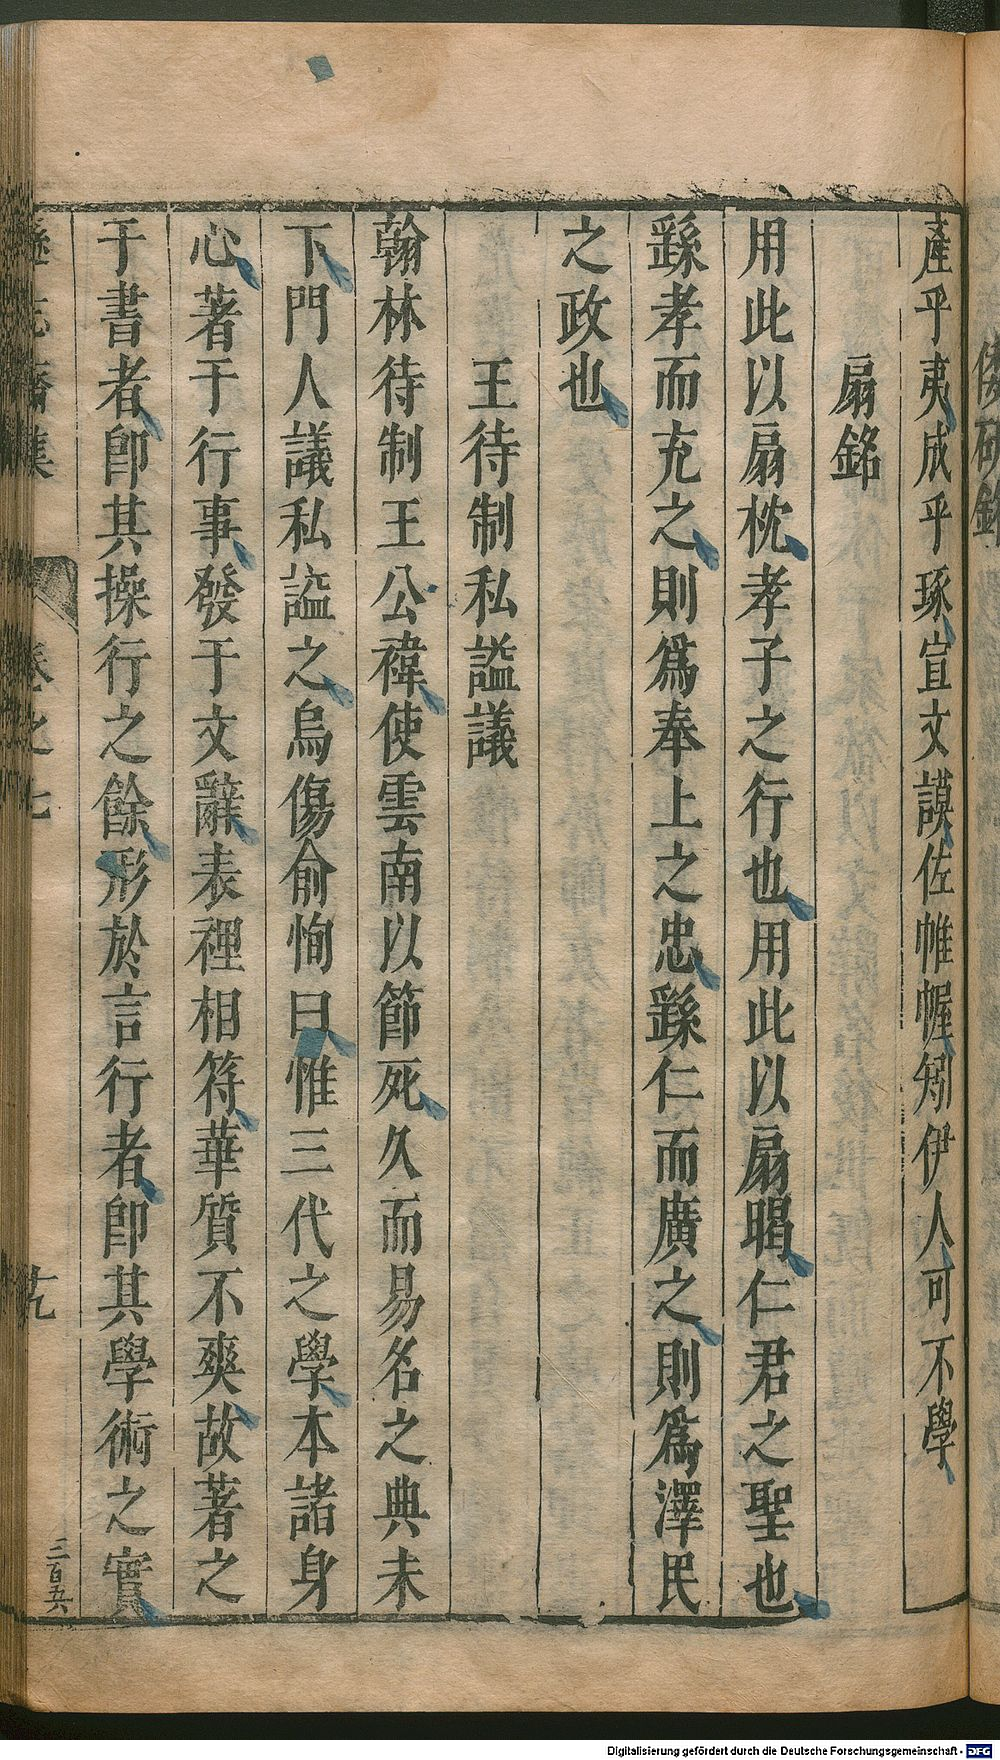 產乎夷成乎琢宣文謨佐帷幄矧伊人可不學
扇銘
用此以扇枕孝子之行也用此以扇暍仁君之聖也
繇孝而充之則爲奉上之忠繇仁而廣之則爲澤民
之政也
王待制私謚議
翰林待制王公褘使雲南以節死久而易名之典未
下門人議私謚之烏傷俞恂曰惟三代之學本諸身
心著于行事發于文辭表裡相符華質不爽故著之
于書者卽其操行之餘形於言行者卽其學術之實
遜志齋集
卷之七
十九
三百五六
硯銘
Digitalisierung gefördert durch die Deutsche Forschungsgemeinschaft - DFG